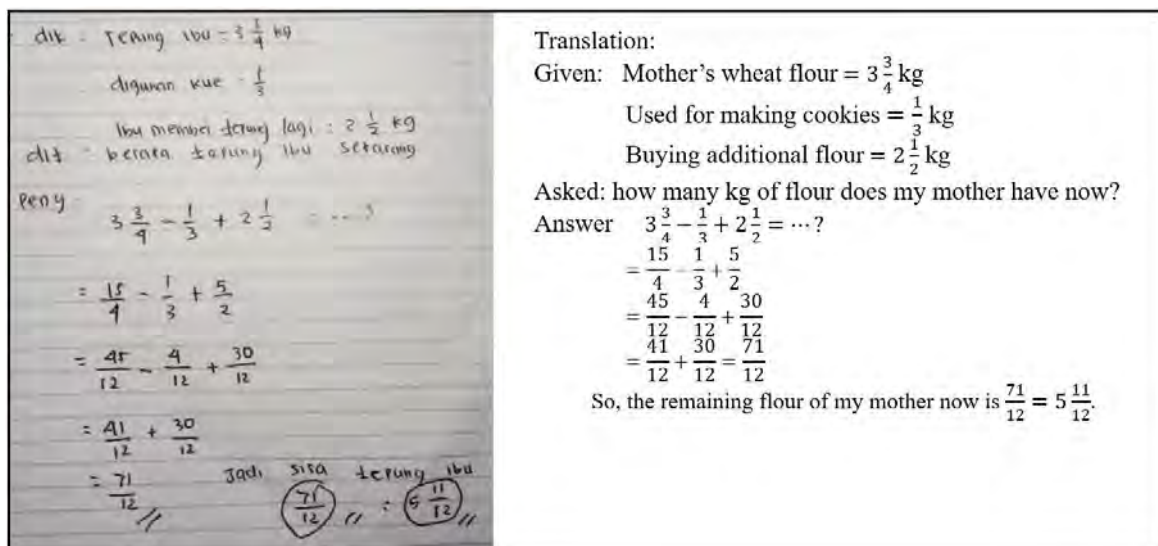 dik = Tepung ibu = 3 3/4 kg
digunan kue = 1/3
Ibu member terung lagi = 2 1/2 kg
dit = berara tarung ibu sekarang
Peny
3 3/4 - 1/3 + 2 1/2 = ... ?
= 15/4 - 1/3 + 5/2
= 45/12 - 4/12 + 30/12
= 41/12 + 30/12
= 71/12 //
Jadi sisa terung ibu
71/12 // = 5 11/12 //
Translation:
Given: Mother's wheat flour = 3 3/4 kg
Used for making cookies = 1/3 kg
Buying additional flour = 2 1/2 kg
Asked: how many kg of flour does my mother have now?
Answer 3 3/4 − 1/3 + 2 1/2 = ⋯ ?
= 15/4 − 1/3 + 5/2
= 45/12 − 4/12 + 30/12
= 41/12 + 30/12 = 71/12
So, the remaining flour of my mother now is 71/12 = 5 11/12.